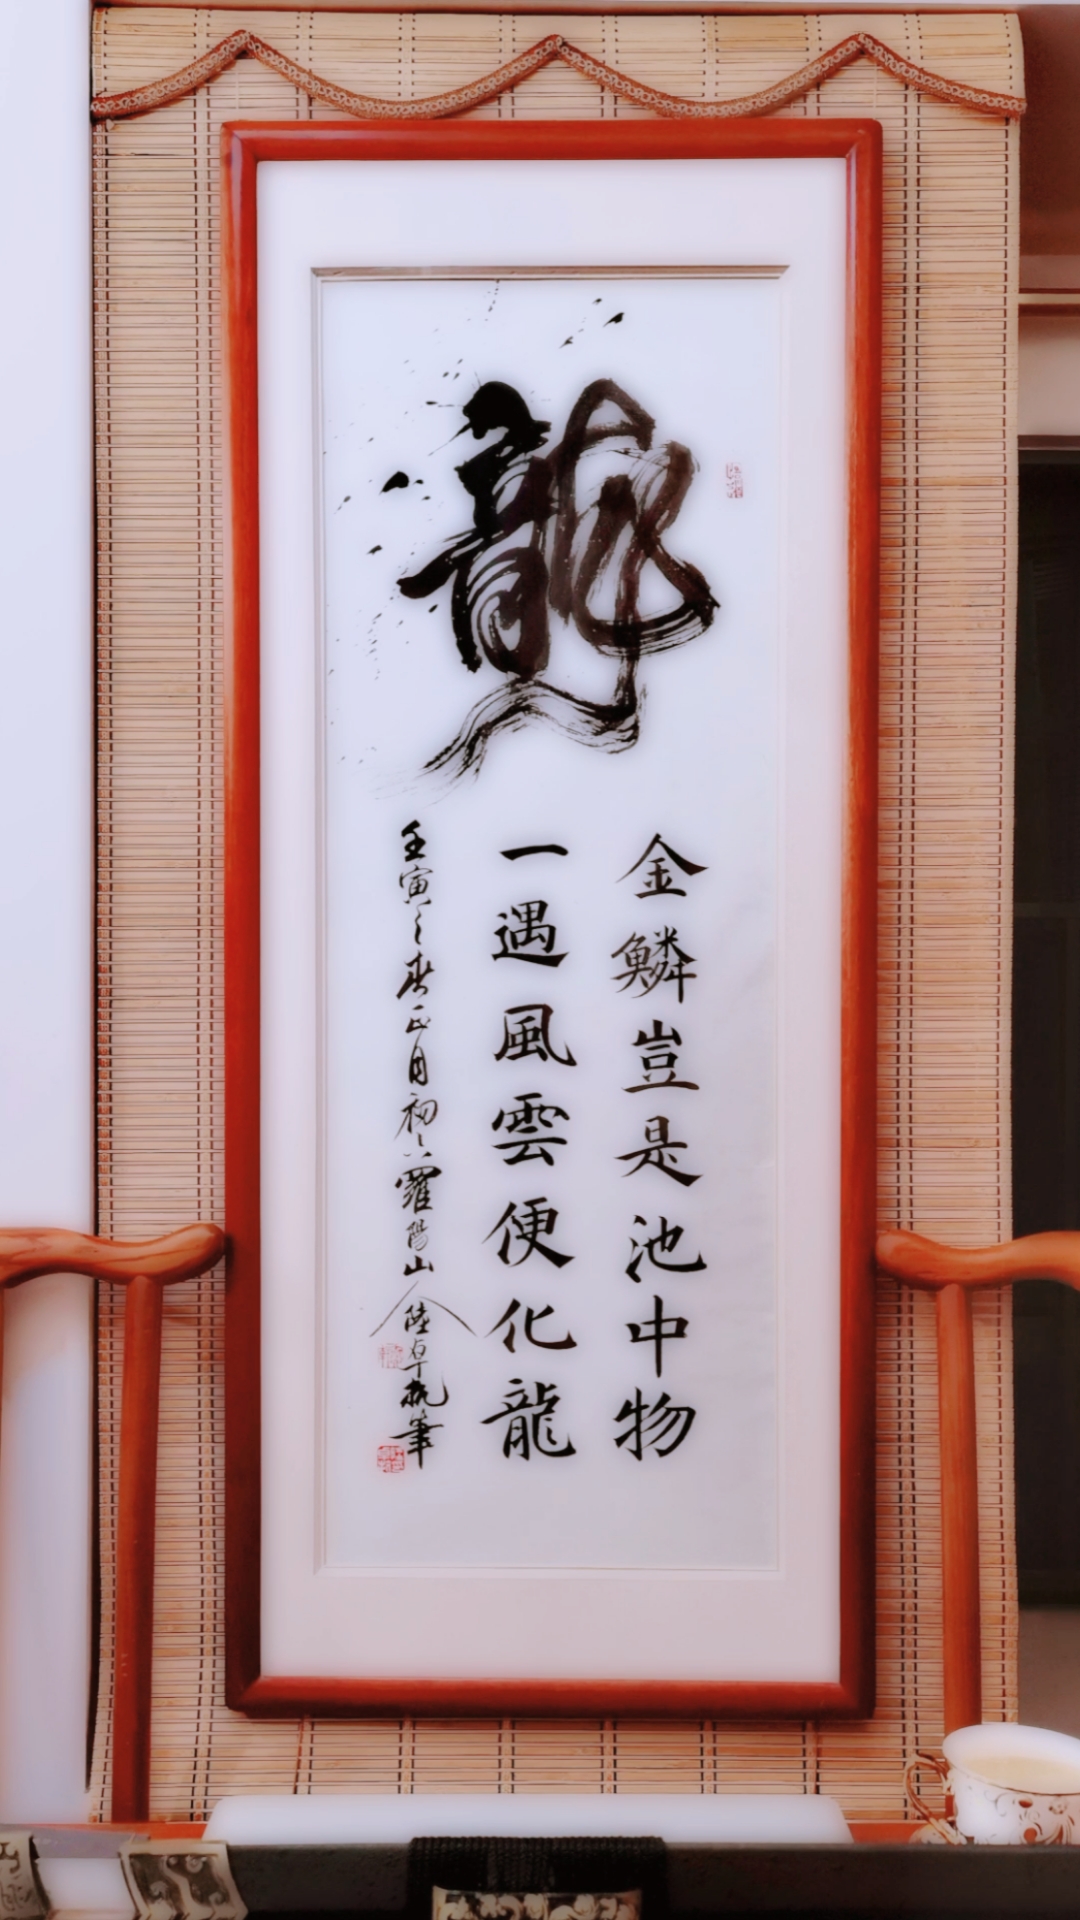 龍
金鱗豈是池中物
一遇風雲便化龍
壬寅之春正月初六羅陽山人陸卓執筆